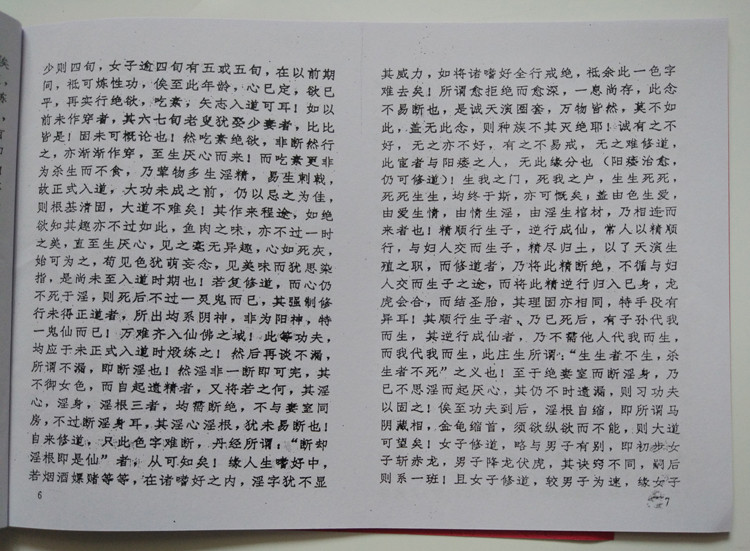 少则四旬，女子逾四旬有五或五旬，在以前期
间，祗可炼性功，俟至此年龄，心已定，欲已
平，再实行绝欲，吃素，矢志入道可耳！如以
前未作穿者，其六七旬老叟犹娶少妻者，比比
皆是！固未可概论也！然吃素绝欲，非断然行
之，亦渐渐作穿，至生厌心而来！而吃素更非
为杀生而不食，乃荤物多生淫精，易生刺戟，
故正式入道，大功未成之前，仍以忌之为佳，
则根基清固，大道不难矣！其作来程途，如绝
欲知其趣亦不过如此，鱼肉之味，亦不过一时
之美，直至生厌心，见之毫无异趣，心如死灰，
始可为之，苟见色犹萌妄念，见美味而犹思染
指，是尚未至入道时期也！若复修道，而心仍
不死于淫，则死后不过一灵鬼而已，其强制修
行未得正道者，所出均系阴神，非为阳神，特
一鬼仙而已！万难齐入仙佛之域！此等功夫，
均应于未正式入道时煅练之！然后再谈不漏，
所谓不漏，即断淫也！然淫非一断即可完，其
不御女色，而自起遗精者，又将若之何，其淫
心，淫身，淫根三者，均需断绝，不与妻室同
房，不过断淫身耳，其淫心淫根，犹未易断也！
自来修道，只此色字难断，丹经所谓：“断却
淫根即是仙”者，从可知矣！缘人生嗜好中，
若烟酒嫖赌等等，在诸嗜好之内，淫字犹不显
6
其威力，如将诸嗜好全行戒绝，祗余此一色字
难去矣！所谓愈拒绝而愈深，一息尚存，此念
不易断也，是诚天演圈套，万物皆然，莫不如
此，盖无此念，则种族不其灭绝耶！诚有之不
好，无之亦不好，有之不易戒，无之难修道，
此宦者与阳痿之人，无此缘分也（阳痿治愈，
仍可修道）！生我之门，死我之户，生生死死，
死死生生，均终于斯，亦可慨矣！盖由色生爱，
由爱生情，由情生淫，由淫生棺材，乃相连而
来者也！精顺行生子，逆行成仙，常人以精顺
行，与妇人交而生子，精尽归土，以了天演生
殖之职，而修道者，乃将此精断绝，不循与妇
人交而生子之途，而将此精逆行归入己身，龙
虎会合，而结圣胎，其理固亦相同，特手段有
异耳！其顺行生子者，乃已死后，有子孙代我
而生，其逆行成仙者，乃不需他人代我而生，
而我代我而生，此庄生所谓：“生生者不生，杀
生者不死”之义也！至于绝妻室而断淫身，乃
已不思淫而起厌心，其仍不时遗漏，则习功夫
以固之！俟至功夫到后，淫根自缩，即所谓马
阴藏相，金龟缩首，须欲纵欲而不能，则大道
可望矣！女子修道，略与男子有别，即初步女
子斩赤龙，男子降龙伏虎，其诀窍不同，嗣后
则系一班！且女子修道，较男子为速，缘女子
7